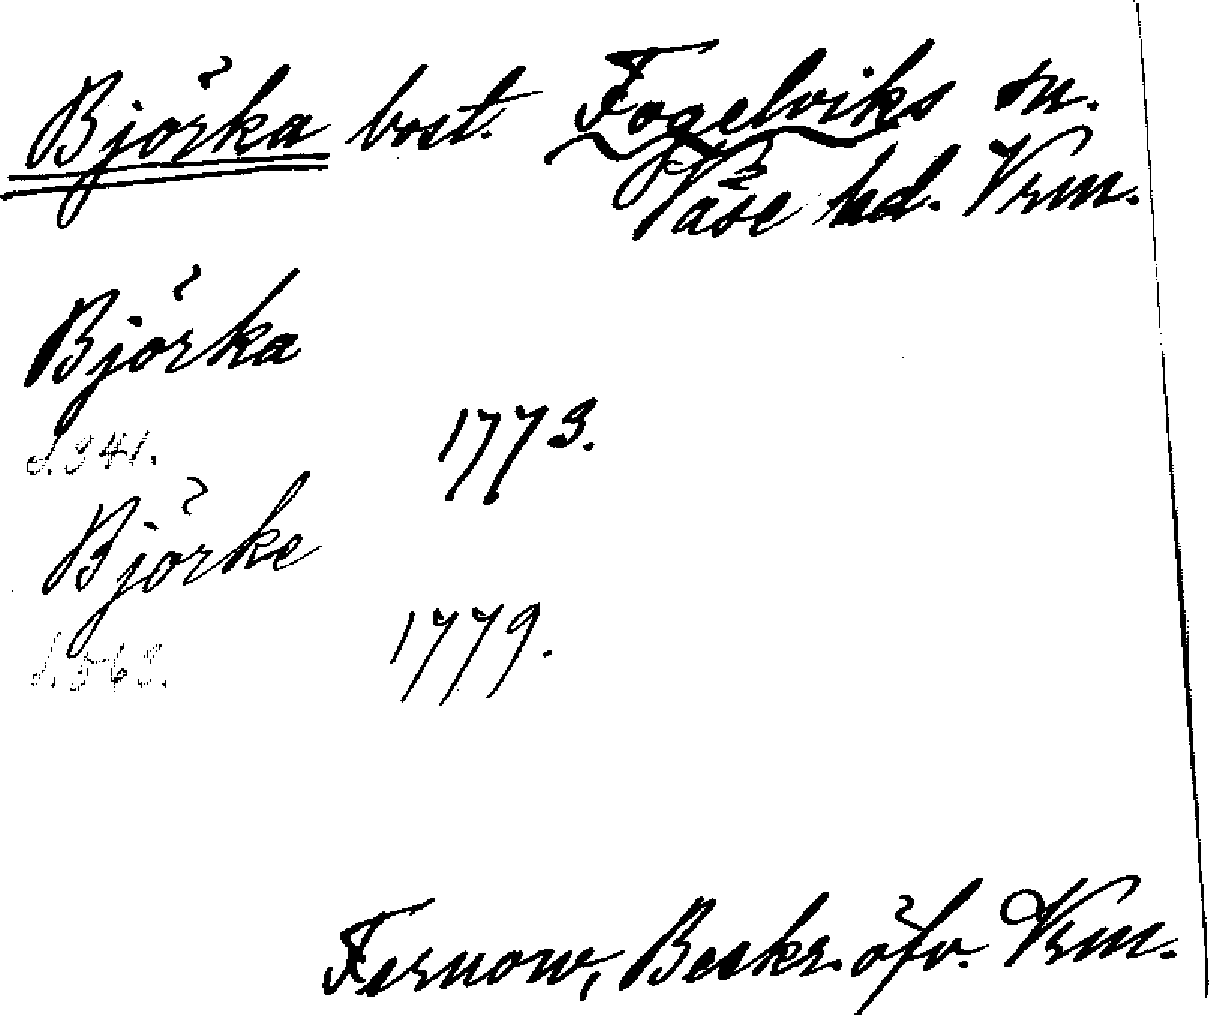 Björka bost. Fogelviks sn.
Väse hd. Vrm.
Björka
S. 341.
1773.
Björke
S. 563.
1779.
Fernow, Beskr. öfv. Vrm.